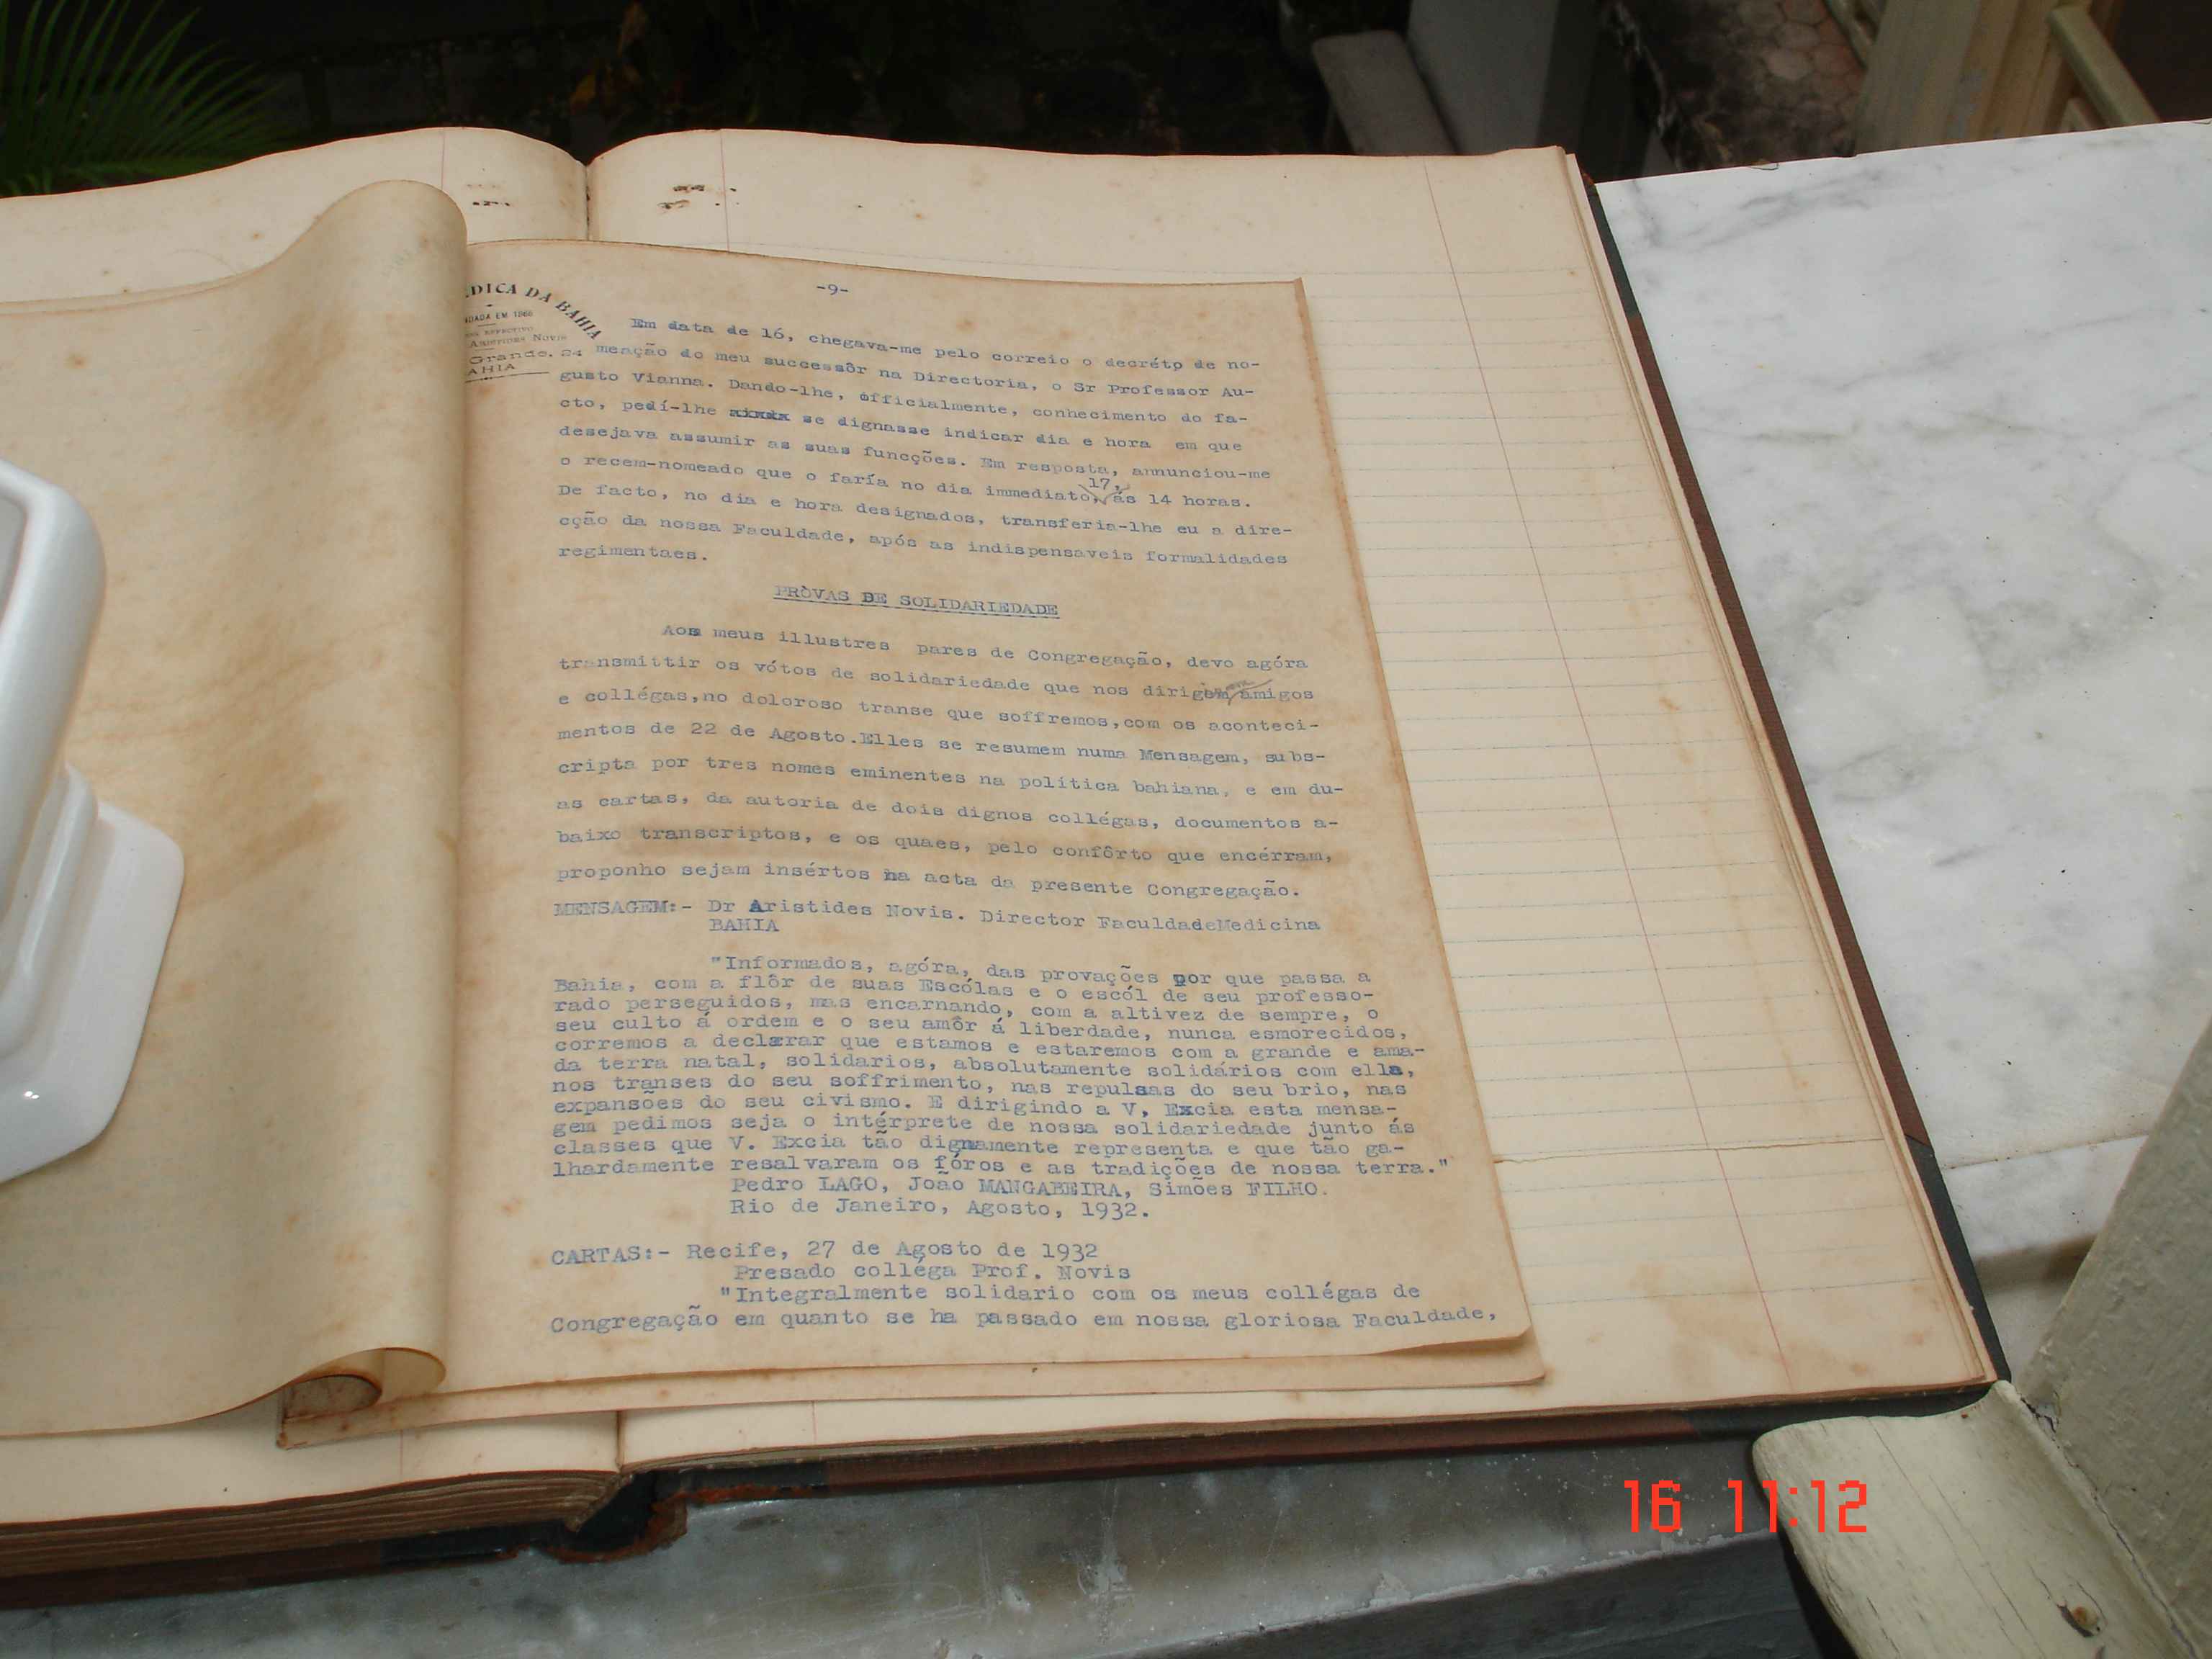 -9-
DICA DA BAHIA
DADA EM 1866
EFFECTIVO
ARISTIDES NOVIS
Grande, 24
AHIA
Em data de 16, chegava-me pelo correio o decréto de no-
meação do meu successôr na Directoria, o Sr Professor Au-
gusto Vianna. Dando-lhe, officialmente, conhecimento do fa-
cto, pedí-lhe se dignasse indicar dia e hora em que
desejava assumir as suas funcções. Em resposta, annunciou-me
o recem-nomeado que o faría no dia immediato, 17, ás 14 horas.
De facto, no dia e hora designados, transferia-lhe eu a dire-
cção da nossa Faculdade, após as indispensaveis formalidades
regimentaes.
PRÒVAS DE SOLIDARIEDADE
Aos meus illustres pares de Congregação, devo agóra
transmittir os vótos de solidariedade que nos dirigem amigos
e collégas,no doloroso transe que soffremos,com os aconteci-
mentos de 22 de Agosto.Elles se resumem numa Mensagem, subs-
cripta por tres nomes eminentes na politica bahiana, e em du-
as cartas, da autoria de dois dignos collégas, documentos a-
baixo transcriptos, e os quaes, pelo confôrto que encérram,
proponho sejam insértos na acta da presente Congregação.
MENSAGEM:- Dr Aristides Novis. Director FaculdadeMedicina
BAHIA
"Informados, agóra, das provações por que passa a
Bahia, com a flôr de suas Escólas e o escól de seu professo-
rado perseguidos, mas encarnando, com a altivez de sempre, o
seu culto á ordem e o seu amôr á liberdade, nunca esmorecidos,
corremos a declarar que estamos e estaremos com a grande e ama-
da terra natal, solidarios, absolutamente solidários com ella,
nos transes do seu soffrimento, nas repulsas do seu brio, nas
expansões do seu civismo. E dirigindo a V, Excia esta mensa-
gem pedimos seja o intérprete de nossa solidariedade junto ás
classes que V. Excia tão dignamente representa e que tão ga-
lhardamente resalvaram os fóros e as tradições de nossa terra."
Pedro LAGO, João MANGABEIRA, Simões FILHO.
Rio de Janeiro, Agosto, 1932.
CARTAS:- Recife, 27 de Agosto de 1932
Presado colléga Prof. Novis
"Integralmente solidario com os meus collégas de
Congregação em quanto se ha passado em nossa gloriosa Faculdade,
16 11:12